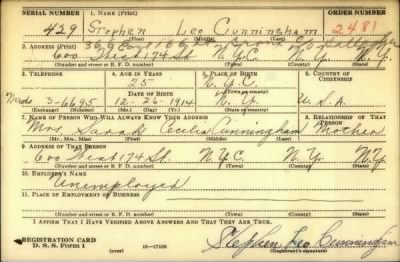 SERIAL NUMBER 1. NAME (Print) ORDER NUMBER
429 Stephen Leo Cunningham 2481
(First) (Middle) (Last)
2. ADDRESS (Print)
600 West 174 St. N.Y.C. N.Y.
(Number and street or R. F. D. number) (Town) (County) (State)
3. TELEPHONE 4. AGE IN YEARS 5. PLACE OF BIRTH 6. COUNTRY OF CITIZENSHIP
25 N.Y.C.
Wads DATE OF BIRTH (Town or county)
3-6695 12-26-1914 N.Y. U.S.A.
(Exchange) (Number) (Mo.) (Day) (Yr.) (State or country)
7. NAME OF PERSON WHO WILL ALWAYS KNOW YOUR ADDRESS 8. RELATIONSHIP OF THAT PERSON
Mrs. Sarah Cecilia Cunningham Mother
(Mr., Mrs., Miss) (First) (Middle) (Last)
9. ADDRESS OF THAT PERSON
600 West 174 St. N.Y.C. N.Y. N.Y.
(Number and street or R. F. D. number) (Town) (County) (State)
10. EMPLOYER'S NAME
Unemployed
11. PLACE OF EMPLOYMENT OR BUSINESS
(Number and street or R. F. D. number) (Town) (County) (State)
I AFFIRM THAT I HAVE VERIFIED ABOVE ANSWERS AND THAT THEY ARE TRUE.
REGISTRATION CARD
D. S. S. Form 1 (over) 16—17105 Stephen Leo Cunningham
(Registrant's signature)